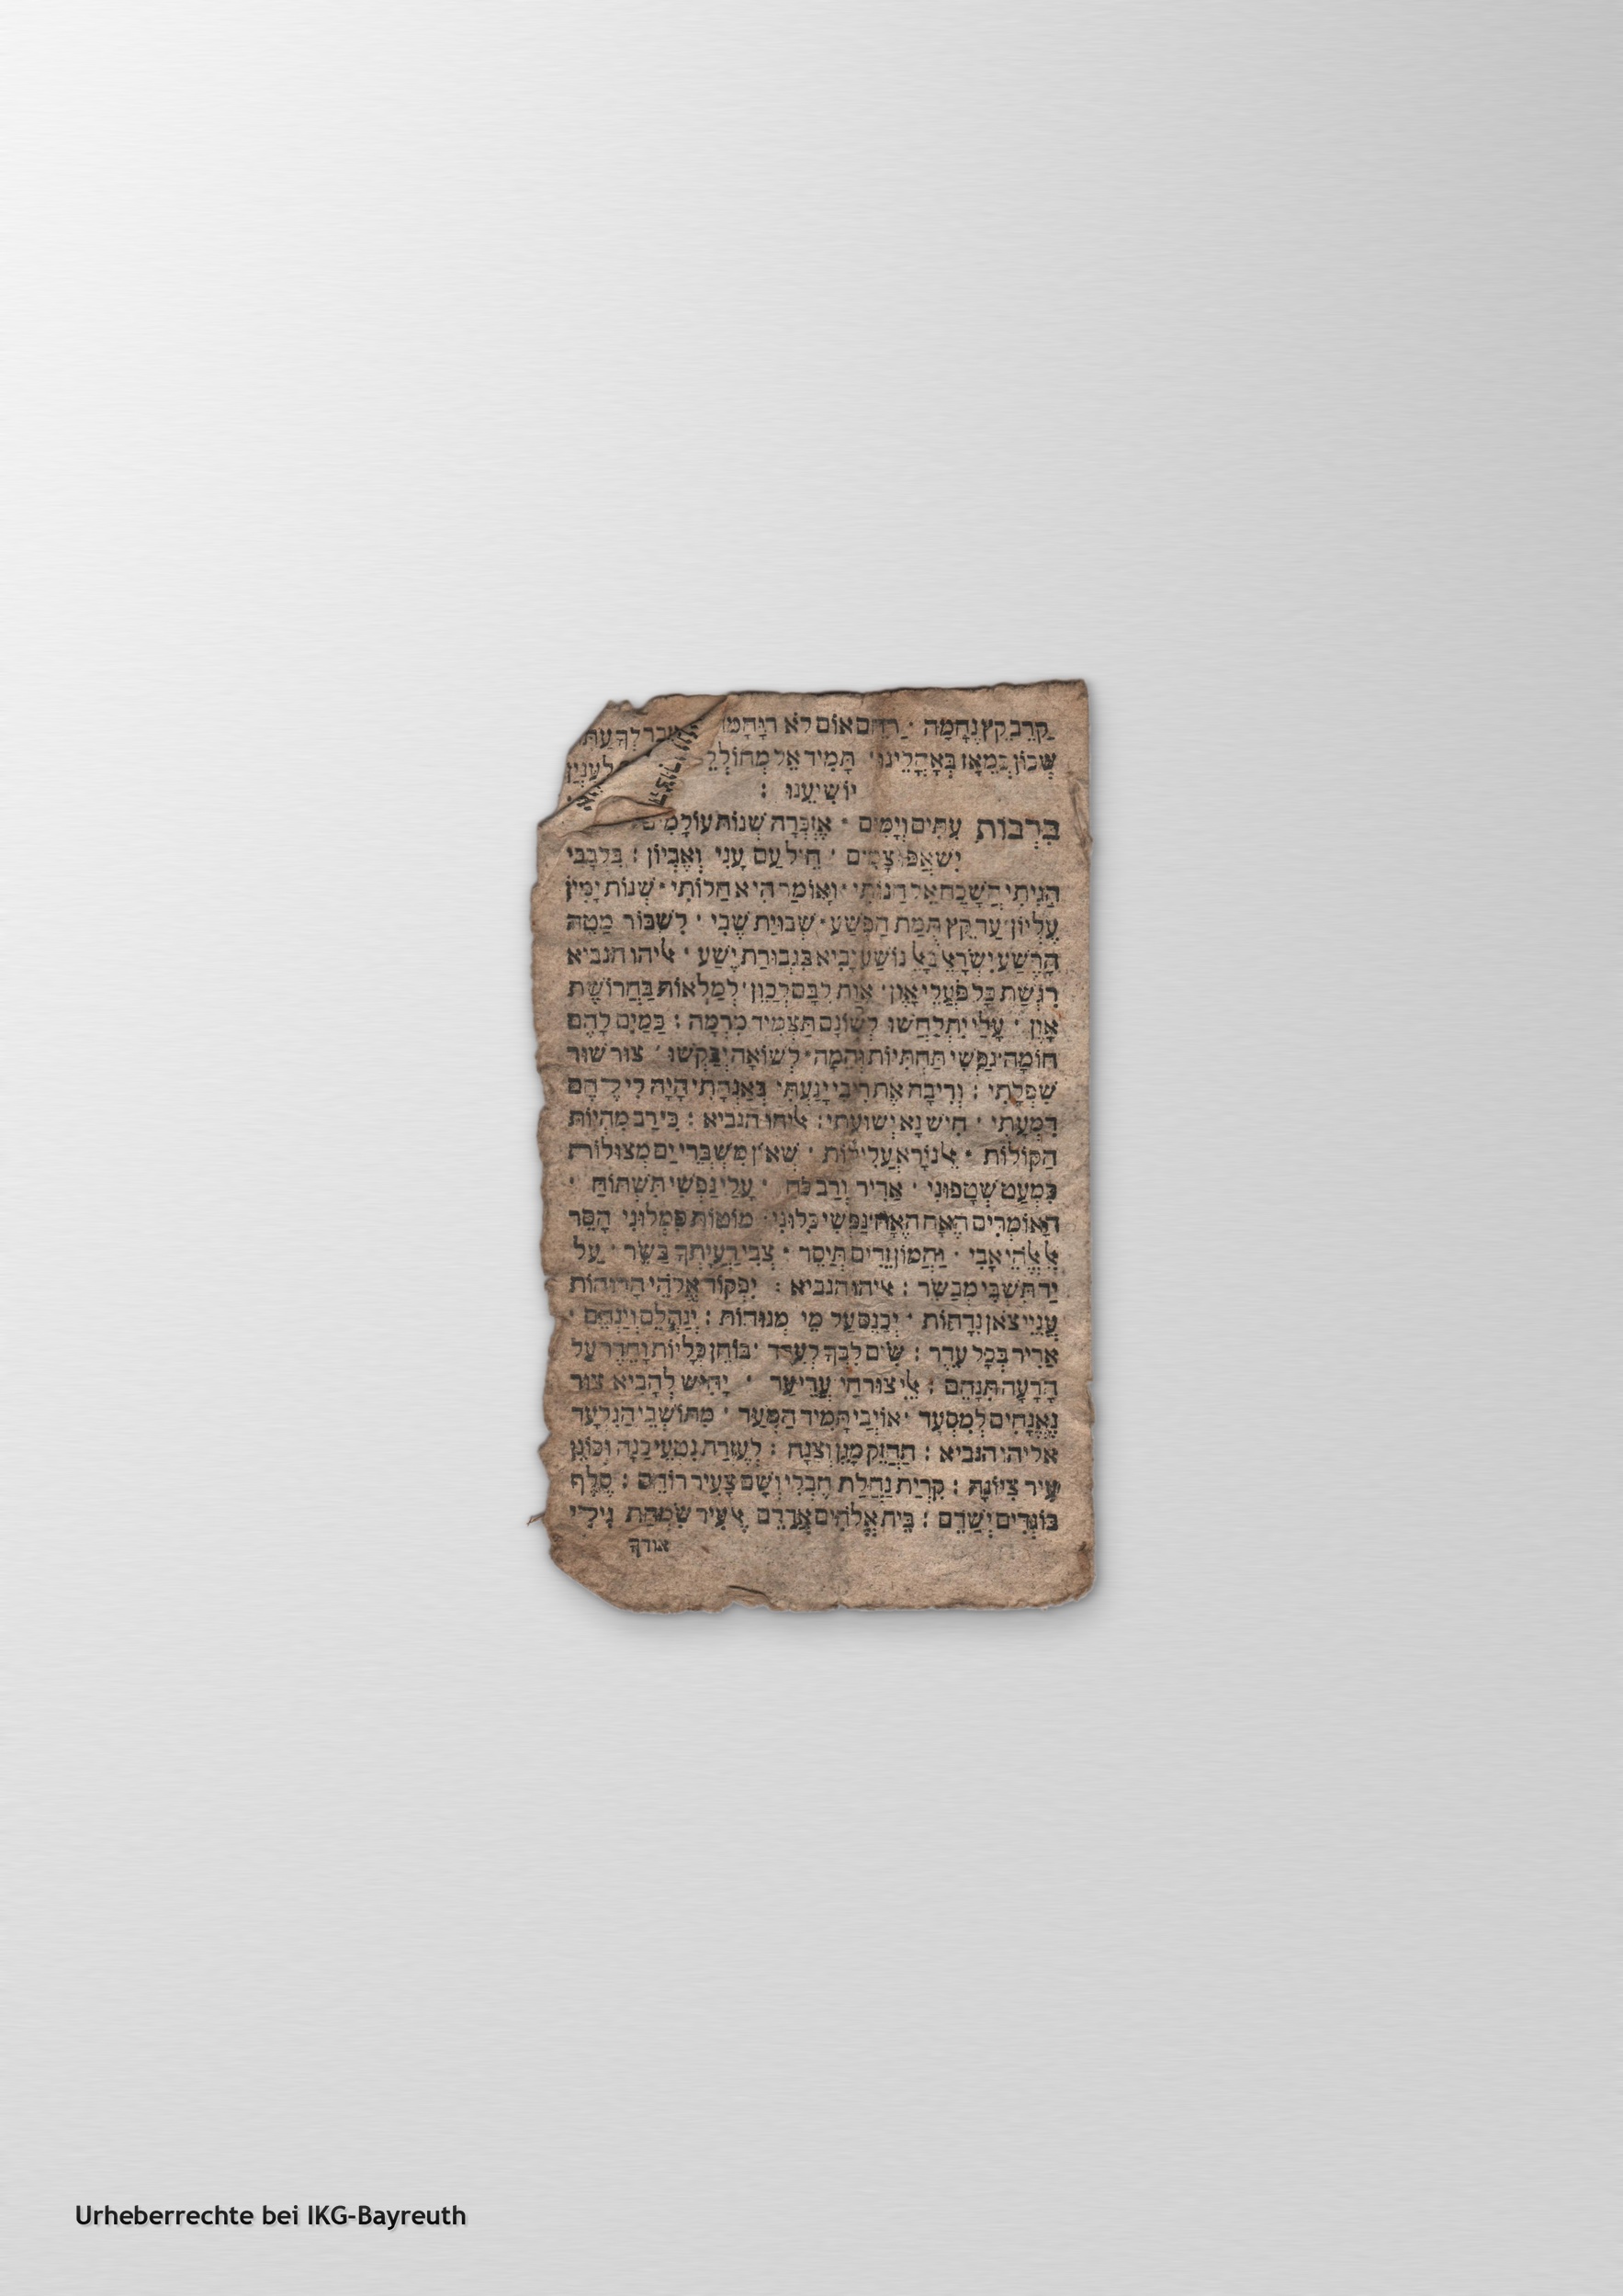 קָרֵב קֵץ נֶחָמָה · רַחֵם אוֹם לֹא רוּחָמָה
שְׁכוֹן כְּמֵאָז בְּאָהֳלֵינוּ · תָּמִיד אַל
יוֹשִׁיעֵנוּ :
בִּרְבוֹת עִתִּים וְיָמִים · אֶזְכְּרָה שְׁנוֹת עוֹלָמִים
חֵיל עַם עָנִי וְאֶבְיוֹן : בִּלְבָבִי
הָגִיתִי הֲשָׁכַח אֵל חַנּוֹתִי · וָאוֹמַר הִיא חַלּוֹתִי · שְׁנוֹת יְמִין
עֶלְיוֹן עַד קֵץ חֲמַת הַפֶּשַׁע · שְׁבוּיַת שֶׁבִי · לִשְׁבּוֹר מַטֵּה
הָרֶשַׁע יִשְׂרָאֵל נוֹשַׁע יָבִיא בִּגְבוּרַת יֶשַׁע · אליהו הנביא
רִגְשַׁת כָּל פֹּעֲלֵי אָוֶן · לִבָּם לְכַוֵּון · לְמַלְאוֹת בַּחֲרוֹשֶׁת
אָוֶן · עָלַי יִתְלַחֲשׁוּ לְשׁוֹנָם תַּצְמִיד מִרְמָה : בַּמַּיִם לָהֶם
חוֹמָה נַפְשִׁי תַּחְתִּיּוֹת וְהֵמָּה · לְשׁוֹאָה יְבַקְשׁוּ · צוּר שׁוּר
שִׁפְלָתִי : וְרִיבָה אֶת רִיבִי יָגַעְתִּי בְּאַנְחָתִי הָיָה לִי לֶחֶם
דִּמְעָתִי · חִישׁ נָא יְשׁוּעָתִי : אליהו הנביא : כִּי רַב מִהְיוֹת
הַקּוֹלוֹת · אֵל נוֹרָא עֲלִילוֹת · שְׁאוֹן מִשְׁבְּרֵי יָם מְצוּלוֹת
כִּמְעַט שְׁטָפוּנִי · אַדִּיר וְרַב כֹּחַ · עָלַי נַפְשִׁי תִּשְׁתּוֹחַ ·
הָאוֹמְרִים הֶאָח הֶאָח נַפְשִׁי כִּלּוּנִי · מוֹטוֹת סִמְלוֹנִי הָסֵר
אֵל אֱלֹהֵי אָבִי · וַהֲמוֹן זֵדִים תְּיַסֵּר · צְבִי רַעְיָתְךָ בַּשֵּׂר · עַל
יַד תִּשְׁבִּי מְבַשֵּׂר : אליהו הנביא : יִפְקוֹד אֱלֹהֵי הָרוּחוֹת
עֲנִיֵּי צֹאן נִדָּחוֹת · יְכַנֵּס עַל מֵי מְנוּחוֹת : יְנַהֲלֵם וְיַנְחֵם ·
אַדִּיר בְּכָל עֵדֶר : שִׂים לִבְּךָ לְעֵדֶר · בּוֹחֵן כְּלָיוֹת וָחֵדֶר עַל
הָרָעָה תִּנָּחֵם : אֵלִי צוּר חַי עֲדֵי עַד · יָחִישׁ לְהָבִיא צוּר
נֶאֱנָחִים לְמִסְעָד · אוֹיְבַי תָּמִיד הַמְעַד · מִתּוֹשָׁבֵי הַגִּלְעָד
אליהו הנביא : הַחֲזֵק מָגֵן וְצִנָּה : לְעֶזְרַת נִטְעֵי כַנָּה וְכוֹנֵן
עִיר צִיּוֹנָהּ : קִרְיַת נַחֲלַת חֶבְלִי וְשָׁם צָעִיר רוֹדֵם : סֶלֶף
בּוֹגְדִים יְשָׁדֵם : בֵּית אֱלֹהִים אֶדַּדֵּם אֶל עִיר שִׂמְחַת גִּילִי
אודך
Urheberrechte bei IKG-Bayreuth